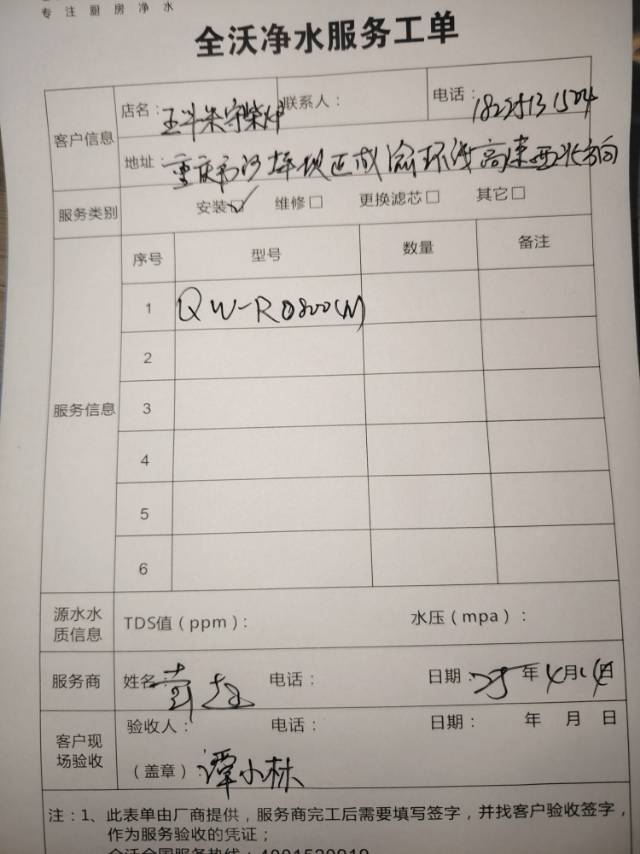 专注厨房净水
全沃净水服务工单
客户信息
店名： 联系人： 电话：
地址：重庆市沙坪坝区成渝环线高速西北方向
服务类别 安装☑ 维修□ 更换滤芯□ 其它□
服务信息
序号 型号 数量 备注
1 QW-RO800(N)
2
3
4
5
6
源水水质信息 TDS值（ppm）： 水压（mpa）：
服务商 姓名 电话： 日期 25年4月14日
客户现场验收
验收人： 电话： 日期： 年 月 日
（盖章）：谭小林
注：1、此表单由厂商提供，服务商完工后需要填写签字，并找客户验收签字，
作为服务验收的凭证；